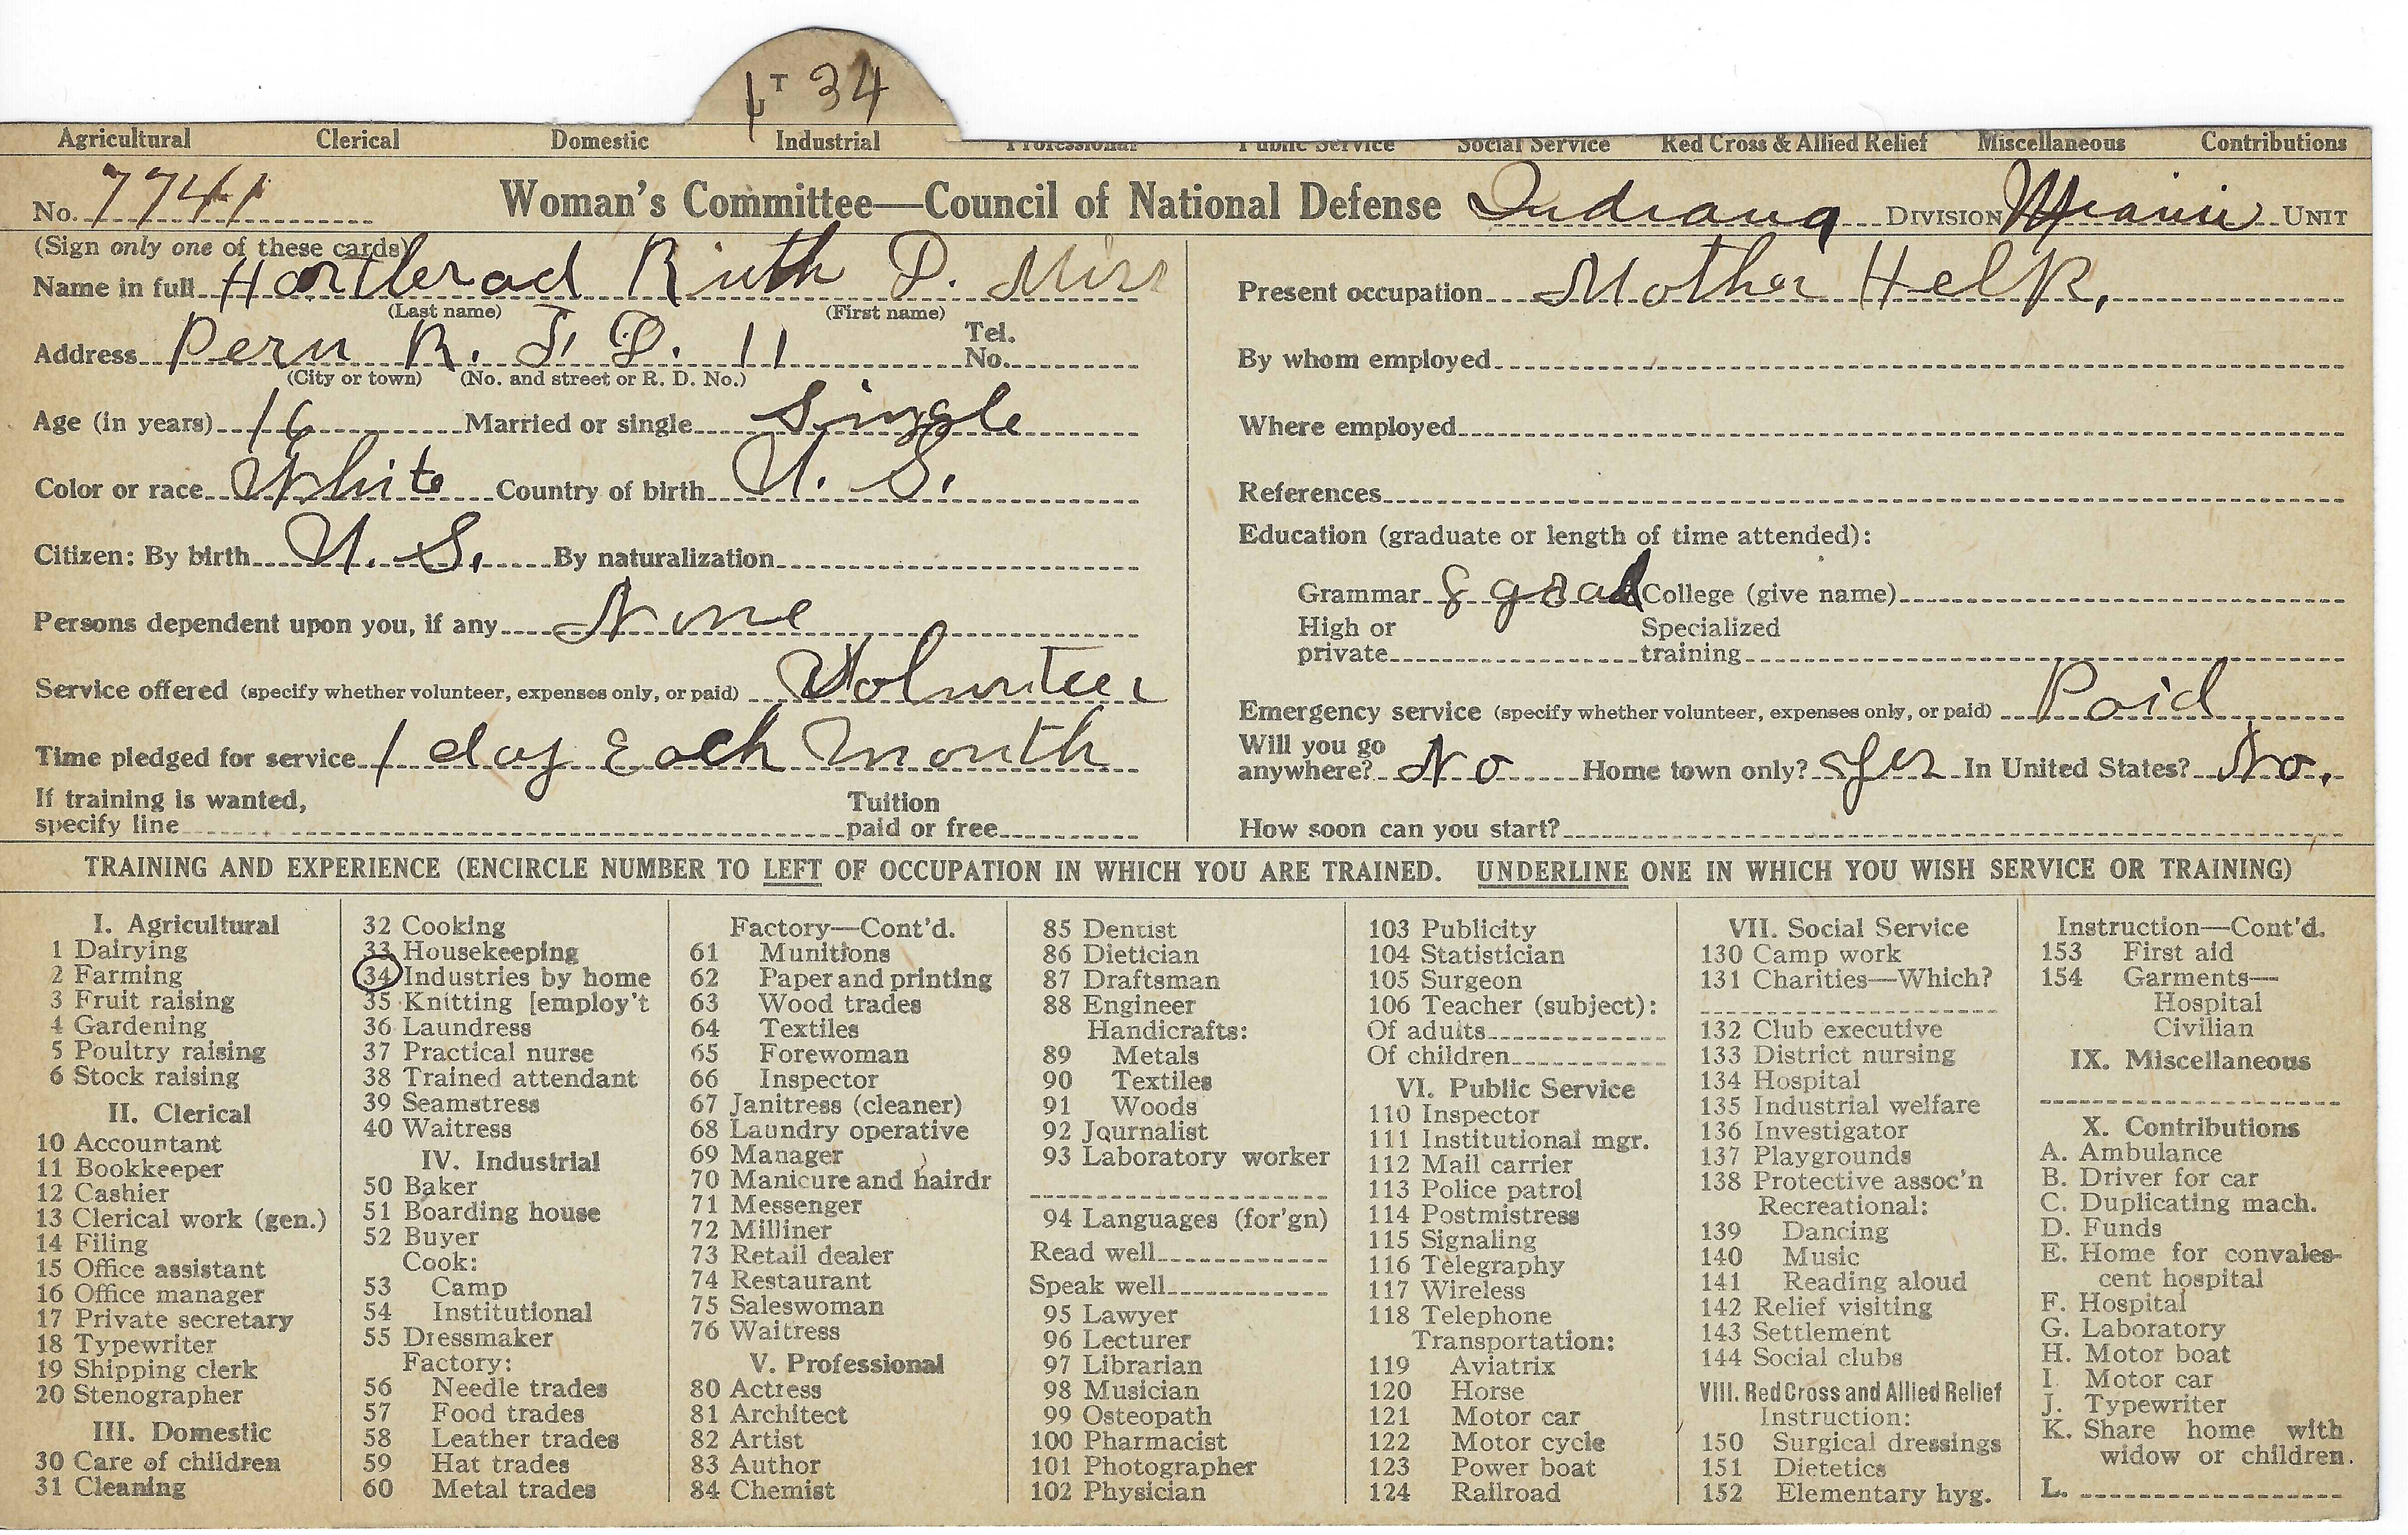 UT 34
Agricultural Clerical Domestic Industrial Professional Public Service Social Service Red Cross & Allied Relief Miscellaneous Contributions
No. 7741 Woman's Committee—Council of National Defense Indiana DIVISION Miami UNIT
(Sign only one of these cards)
Name in full Ruth D. Miss
(Last name) (First name)
Address Peru R. F. D. 11 Tel. No.
(City or town) (No. and street or R. D. No.)
Age (in years) 16 Married or single Single
Color or race White Country of birth U. S.
Citizen: By birth U. S. By naturalization
Persons dependent upon you, if any None
Service offered (specify whether volunteer, expenses only, or paid) Volunteer
Time pledged for service 1 day Each Month
If training is wanted,
specify line
Tuition
paid or free
Present occupation Mother Help,
By whom employed
Where employed
References
Education (graduate or length of time attended):
Grammar 8 grad College (give name)
High or private
Specialized training
Emergency service (specify whether volunteer, expenses only, or paid) Paid
Will you go
anywhere? No Home town only? Yes In United States? No.
How soon can you start?
TRAINING AND EXPERIENCE (ENCIRCLE NUMBER TO LEFT OF OCCUPATION IN WHICH YOU ARE TRAINED. UNDERLINE ONE IN WHICH YOU WISH SERVICE OR TRAINING)
I. Agricultural
1 Dairying
2 Farming
3 Fruit raising
4 Gardening
5 Poultry raising
6 Stock raising
II. Clerical
10 Accountant
11 Bookkeeper
12 Cashier
13 Clerical work (gen.)
14 Filing
15 Office assistant
16 Office manager
17 Private secretary
18 Typewriter
19 Shipping clerk
20 Stenographer
III. Domestic
30 Care of children
31 Cleaning
32 Cooking
33 Housekeeping
34 Industries by home
35 Knitting [employ't
36 Laundress
37 Practical nurse
38 Trained attendant
39 Seamstress
40 Waitress
IV. Industrial
50 Baker
51 Boarding house
52 Buyer
Cook:
53 Camp
54 Institutional
55 Dressmaker
Factory:
56 Needle trades
57 Food trades
58 Leather trades
59 Hat trades
60 Metal trades
Factory—Cont'd.
61 Munitions
62 Paper and printing
63 Wood trades
64 Textiles
65 Forewoman
66 Inspector
67 Janitress (cleaner)
68 Laundry operative
69 Manager
70 Manicure and hairdr
71 Messenger
72 Milliner
73 Retail dealer
74 Restaurant
75 Saleswoman
76 Waitress
V. Professional
80 Actress
81 Architect
82 Artist
83 Author
84 Chemist
85 Dentist
86 Dietician
87 Draftsman
88 Engineer
Handicrafts:
89 Metals
90 Textiles
91 Woods
92 Journalist
93 Laboratory worker
94 Languages (for'gn)
Read well
Speak well
95 Lawyer
96 Lecturer
97 Librarian
98 Musician
99 Osteopath
100 Pharmacist
101 Photographer
102 Physician
103 Publicity
104 Statistician
105 Surgeon
106 Teacher (subject):
Of adults
Of children
VI. Public Service
110 Inspector
111 Institutional mgr.
112 Mail carrier
113 Police patrol
114 Postmistress
115 Signaling
116 Telegraphy
117 Wireless
118 Telephone
Transportation:
119 Aviatrix
120 Horse
121 Motor car
122 Motor cycle
123 Power boat
124 Railroad
VII. Social Service
130 Camp work
131 Charities—Which?
132 Club executive
133 District nursing
134 Hospital
135 Industrial welfare
136 Investigator
137 Playgrounds
138 Protective assoc'n
Recreational:
139 Dancing
140 Music
141 Reading aloud
142 Relief visiting
143 Settlement
144 Social clubs
VIII. Red Cross and Allied Relief
Instruction:
150 Surgical dressings
151 Dietetics
152 Elementary hyg.
Instruction—Cont'd.
153 First aid
154 Garments—
Hospital
Civilian
IX. Miscellaneous
X. Contributions
A. Ambulance
B. Driver for car
C. Duplicating mach.
D. Funds
E. Home for convales-
cent hospital
F. Hospital
G. Laboratory
H. Motor boat
I Motor car
J. Typewriter
K. Share home with
widow or children.
L.